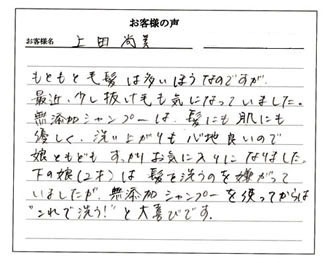 お客様の声
お客様名 上田 尚美
もともと毛髪は多いほうなのですが、
最近、少し抜け毛も気になっていました。
無添加シャンプーは、髪にも肌にも
優しく、洗い上がりも心地良いので
娘ともども すっかりお気に入りになりました。
下の娘(2才)は 髪を洗うのを嫌がって
いましたが、無添加シャンプーを使ってからは
"これで洗う!"と大喜びです。